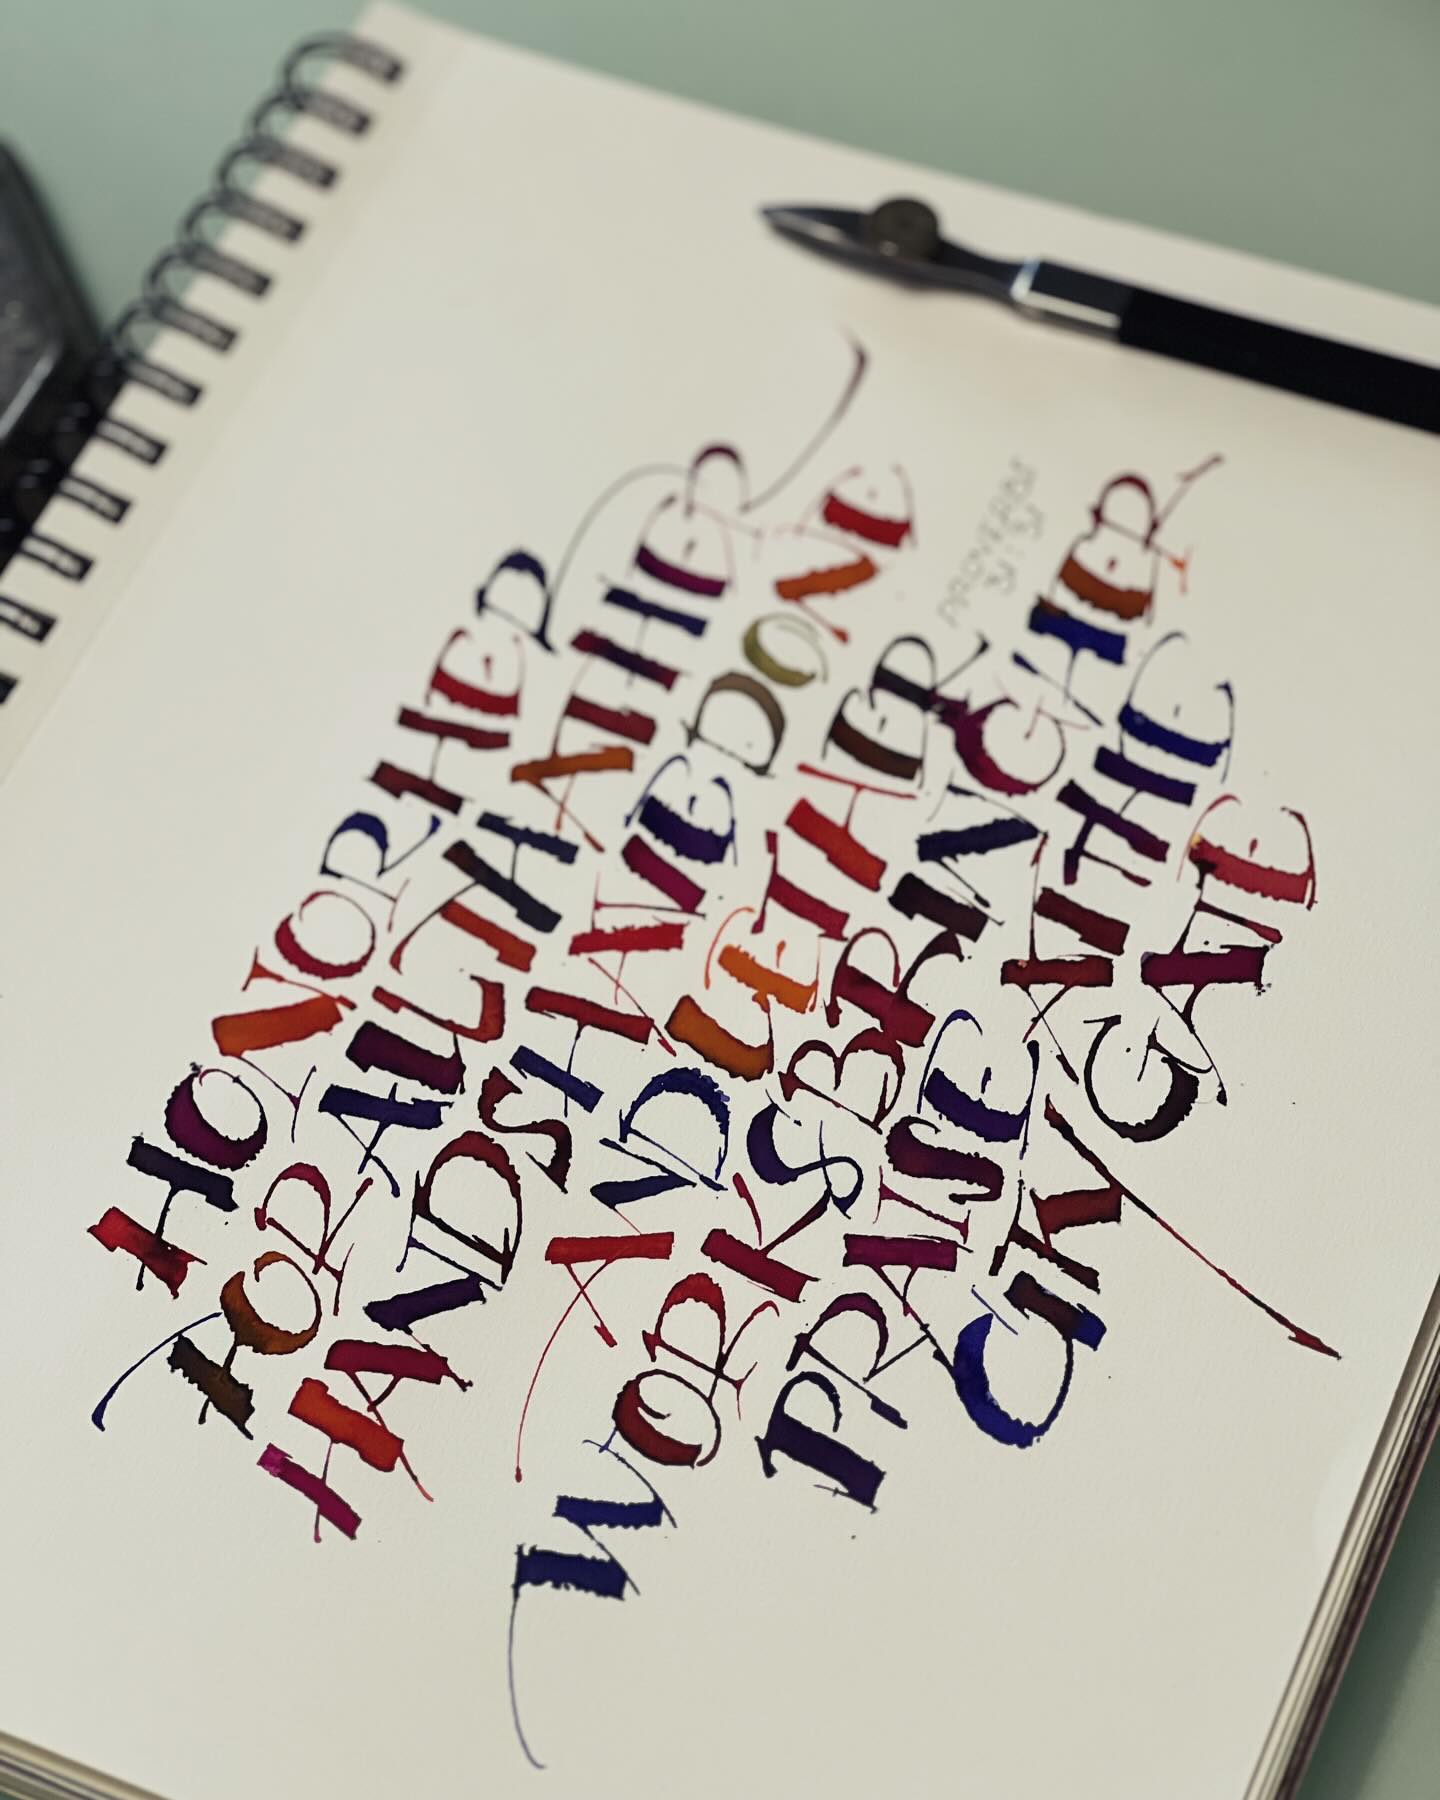 HONOR HER
FOR ALL THAT HER
HANDS HAVE DONE
AND LET HER
WORKS BRING HER
PRAISE AT THE
CITY GATE
PROVERBS
31:31